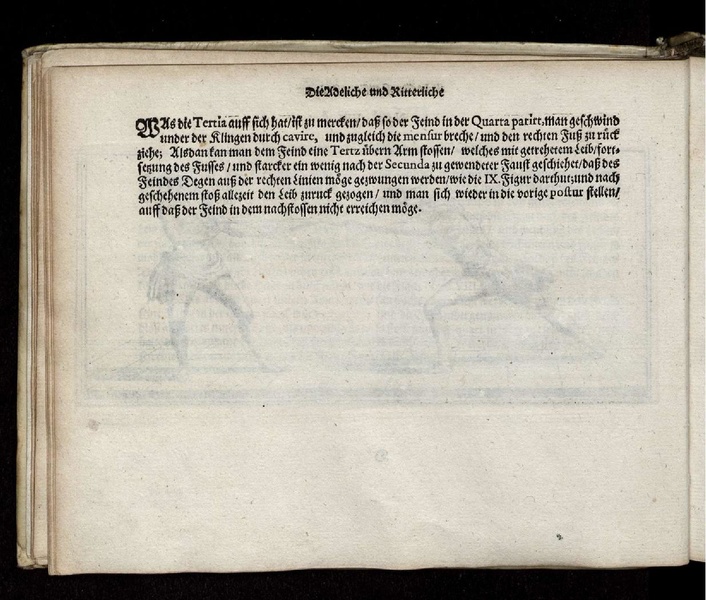 Die Adeliche und Ritterliche
WAs die Tertia auff sich hat/ist zu mercken/daß so der Feind in der Quarta parirt, man geschwind
under der Klingen durch cavire, und zugleich die mensur breche/und den rechten Fuß zu rück
ziehe; Alsdan kan man dem Feind eine Tertz übern Arm stossen/ welches mit getrehetem Leib/fort-
setzung des Fusses/und starcker ein wenig nach der Secunda zu gewendeter Faust geschiehet/daß des
Feindes Degen auß der rechten Linien möge gezwungen werden/wie die IX. Figur darthut; und nach
geschehenem stoß allezeit den Leib zuruck gezogen/ und man sich wieder in die vorige postur stellen/
auff daß der Feind in dem nachstossen nicht erreichen möge.